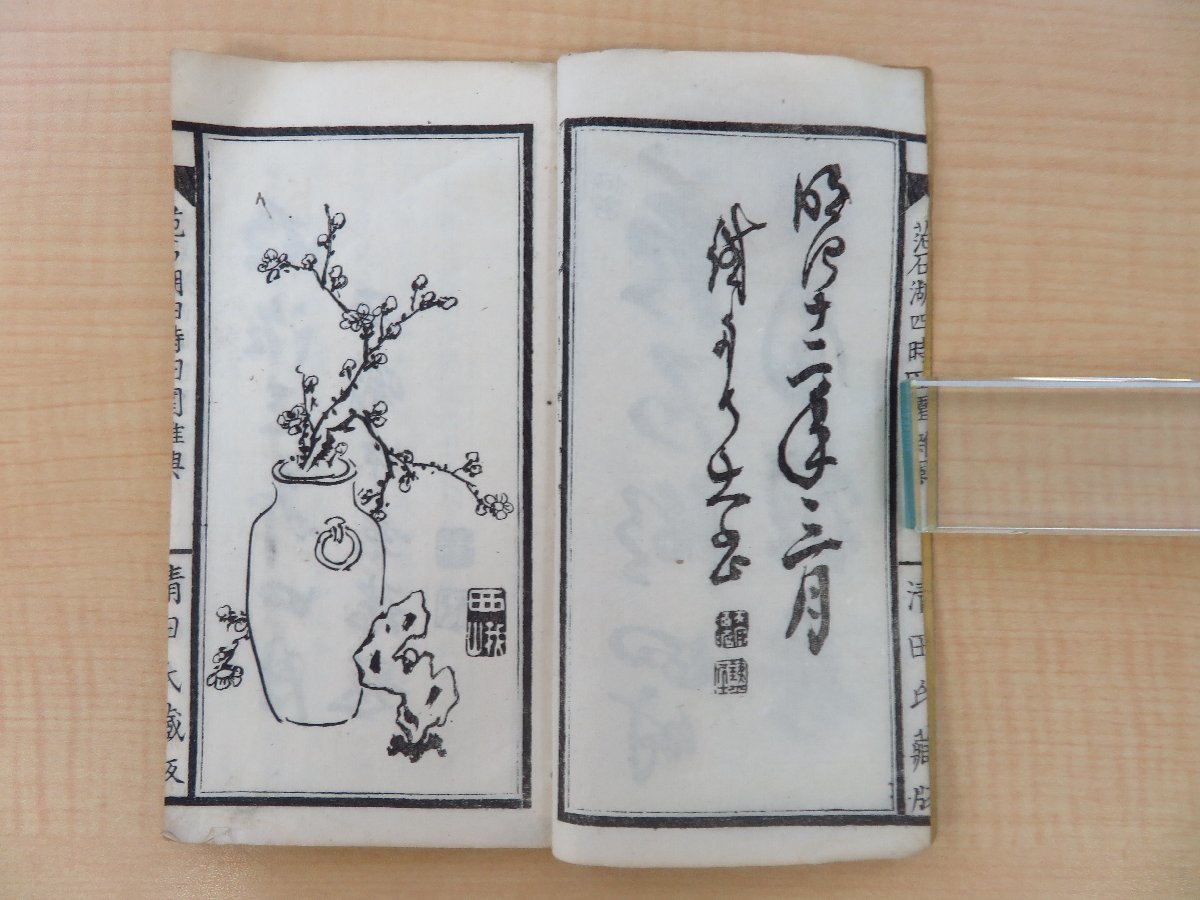 明治十二年三月
鐵舟居士書
范石湖四時田園雜興
清田氏藏版
范石湖四時田園雜興
清田氏藏版